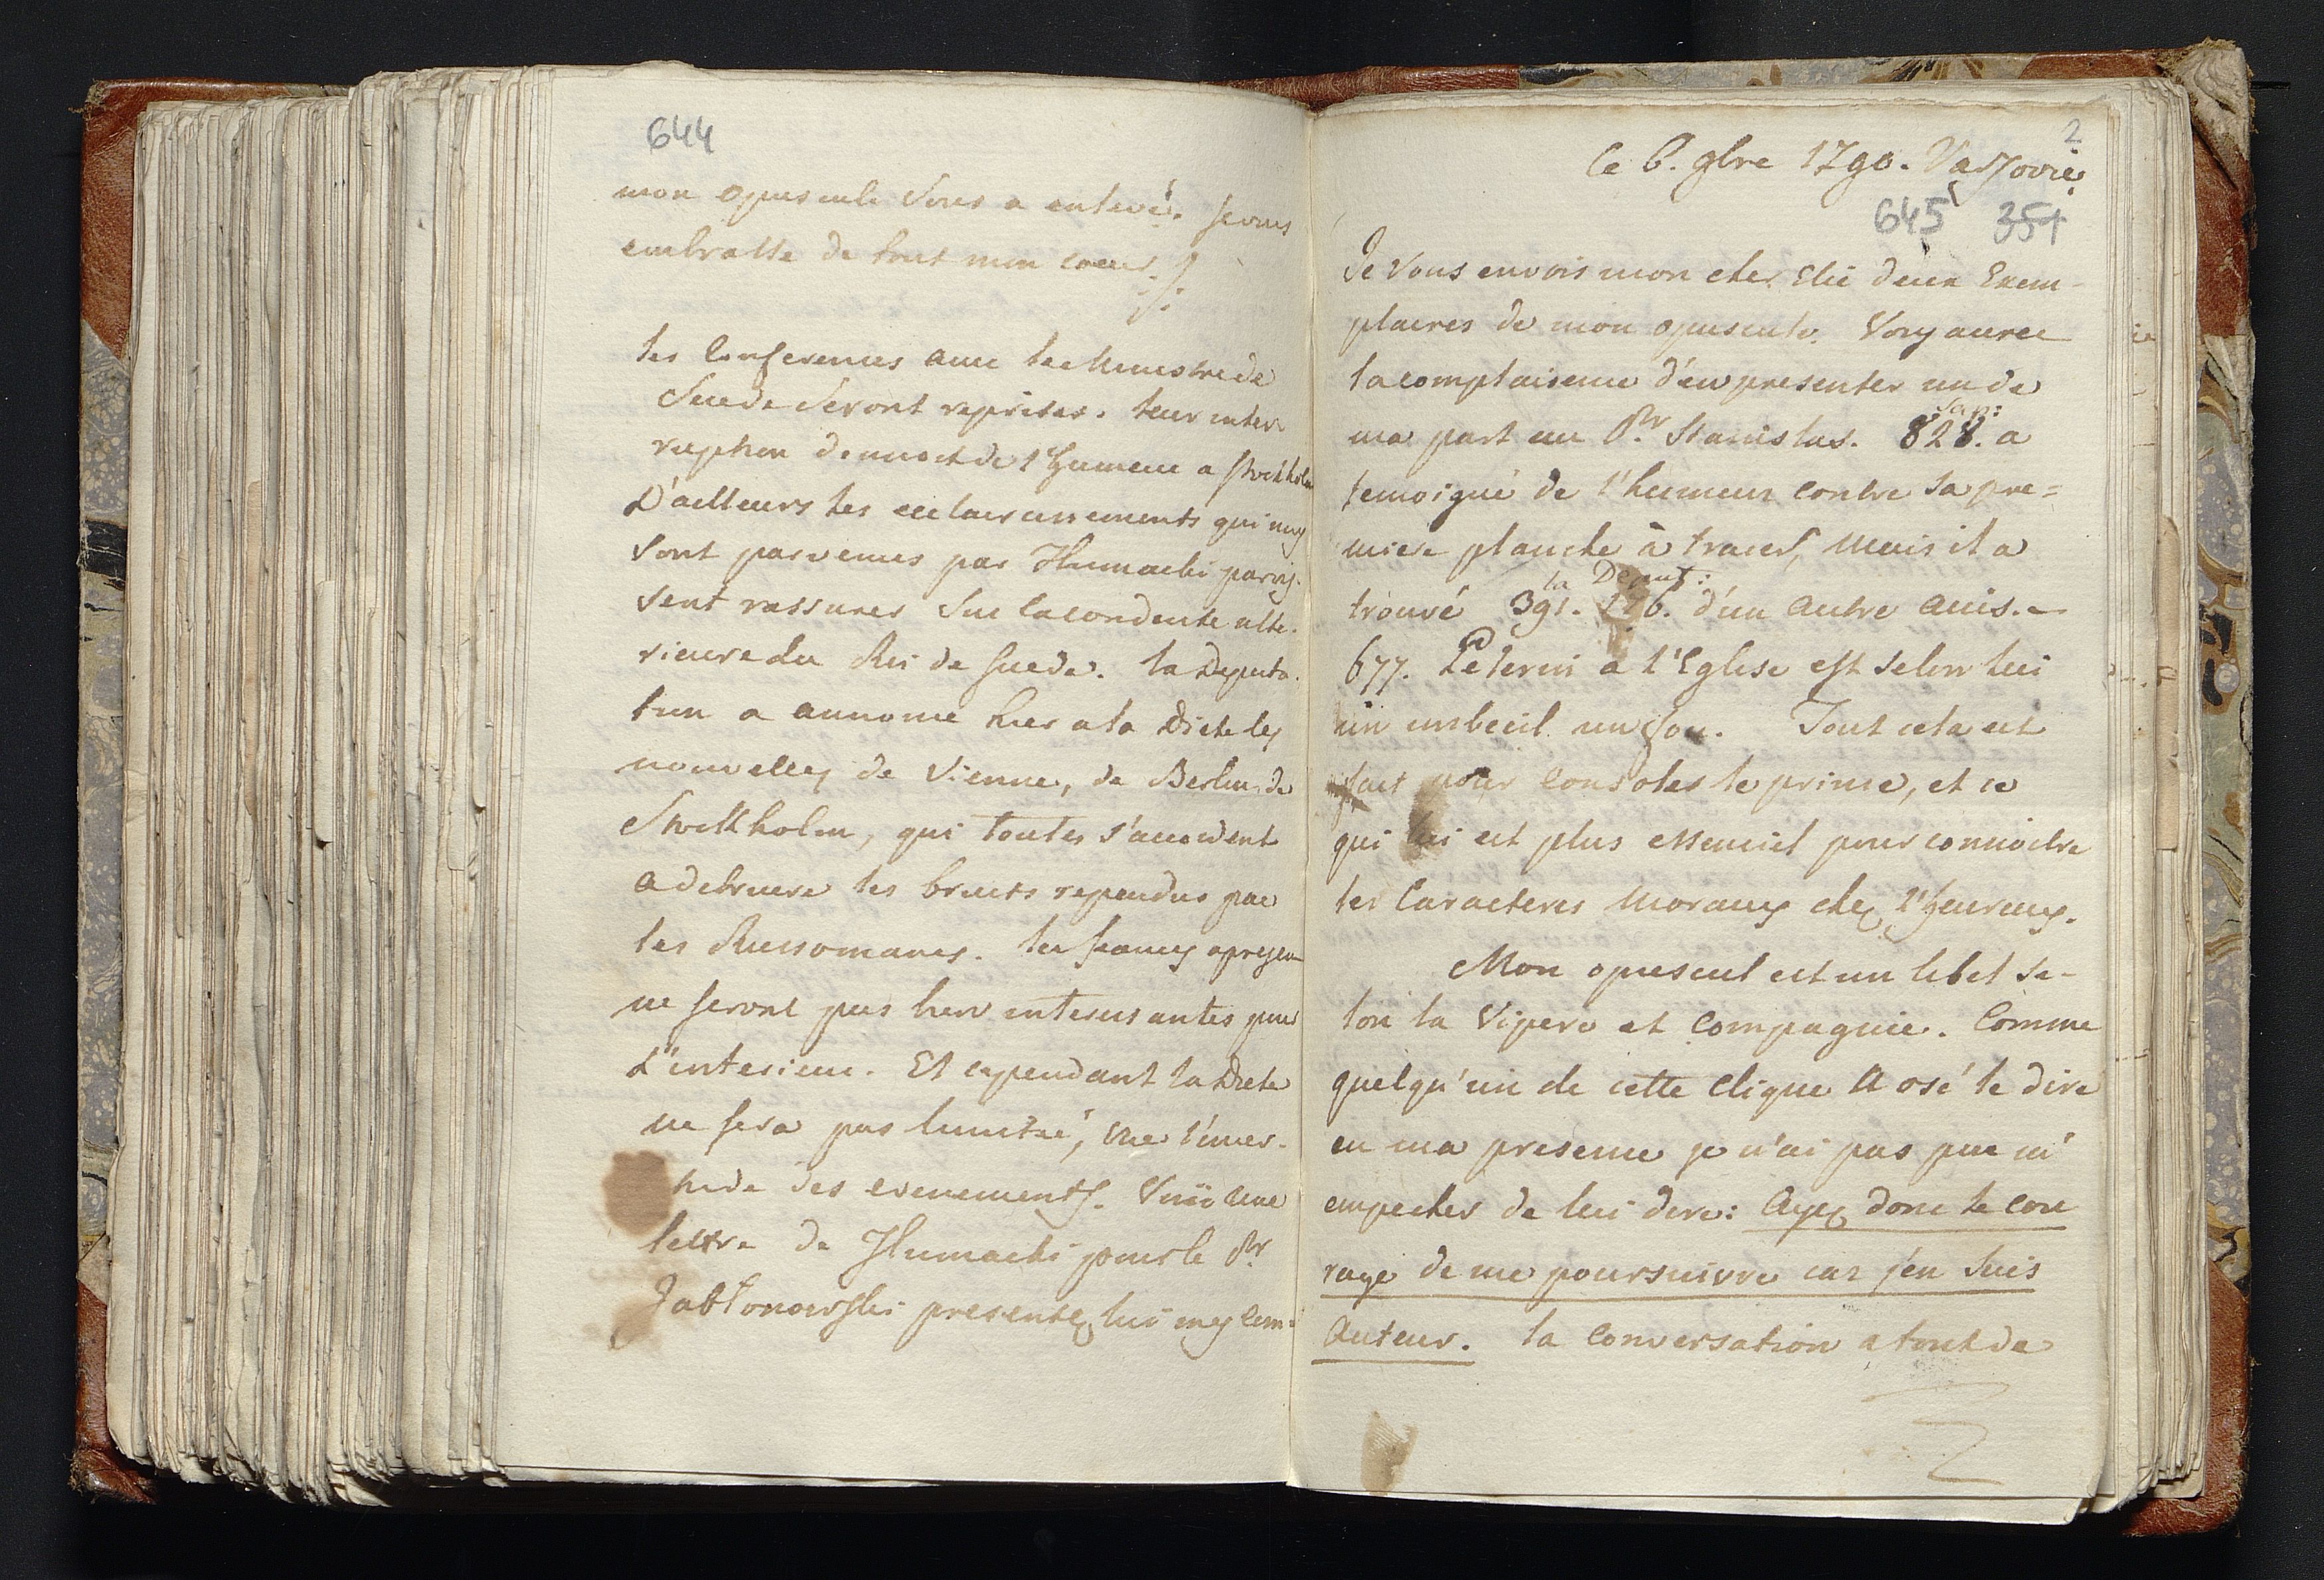 644
mon opuscule Vous a enlevé. Je vous
embrasse de tout mon coeur.
les Conferences avec le Ministre de
Suede seront reprises. leur inter
ruption denuoit de l'humeur a Stockholm
D'ailleurs les eclaircissements qui nous
sont parvenus par
sent rassurer sur la conduite ulte-
rieure du Roi de Suede. la Deputa-
tion a annoncé hier a la Diete les
nouvelles de Vienne, de Berlin de
Stockholm, qui toutes s'accordent
a detruire les bruits rependus par
les Russomanes. les seances apresent
ne seront pas bien interessantes pour
l'interieur. Et cependant la Diete
ne sera pas limitée, vue l'incer-
titude des evenements. Voici une
lettre de pour le Pr.
Jabłonowski presentez lui mes com-
2
Ce 6. 9bre 1790. Varsovie
645 351
Je Vous envois mon cher Elie deux Exem-
plaires de mon opuscule. Vous aurez
la complaisence d'en presenter un de
ma part au Pr. Stanislas. 828. a
Sap:
temoigné de l'humeur contre sa pre=
miere planche à tracer, mais il a
la Deput:
trouvé 391. 176. d'un autre avis.
677. Pelerin a l'Eglise est selon lui
un imbecil un fou. Tout cela est
fait pour consoler le prince, et ce
qui lui est plus essenciel pour connoitre
les Caracteres Moraux chez l'heureux.
Mon opuscul est un libel se-
lon la Vipere et Compagnie. Comme
quelqu'un de cette clique a osé le dire
en ma presence je n'ai pas pue m'
empecher de lui dire: Ayez donc le cou
rage de me poursuivre car j'en suis
Auteur. la Conversation a fout de